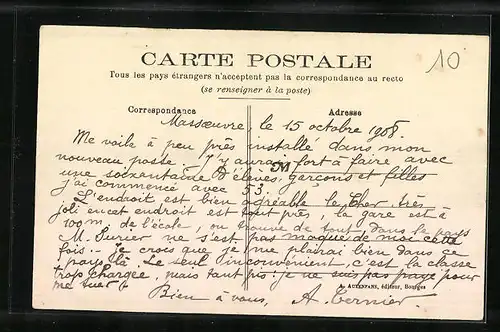 10
CARTE POSTALE
Tous les pays étrangers n'acceptent pas la correspondance au recto
(se renseigner à la poste)
Correspondance
Adresse
Massoeuvre, le 15 octobre 1908.
Me voilà à peu près installé dans mon
nouveau poste. J'y aurai fort à faire avec
une soixantaine d'élèves, garçons et filles
j'ai commencé avec 53.
L'endroit est bien agréable le Cher très
joli en cet endroit est tout près, la gare est à
100m. de l'école, on trouve de tout dans le pays
M. ne s'est pas moqué de moi cette
fois. Je crois que je me plairai bien dans ce
pays là. Le seul inconvénient c'est la classe
trop chargée, mais tant pis: je ne suis pas payé pour
me tuer
Bien à vous, A. Cernier.
A. AUXENFANS, éditeur, Bourges